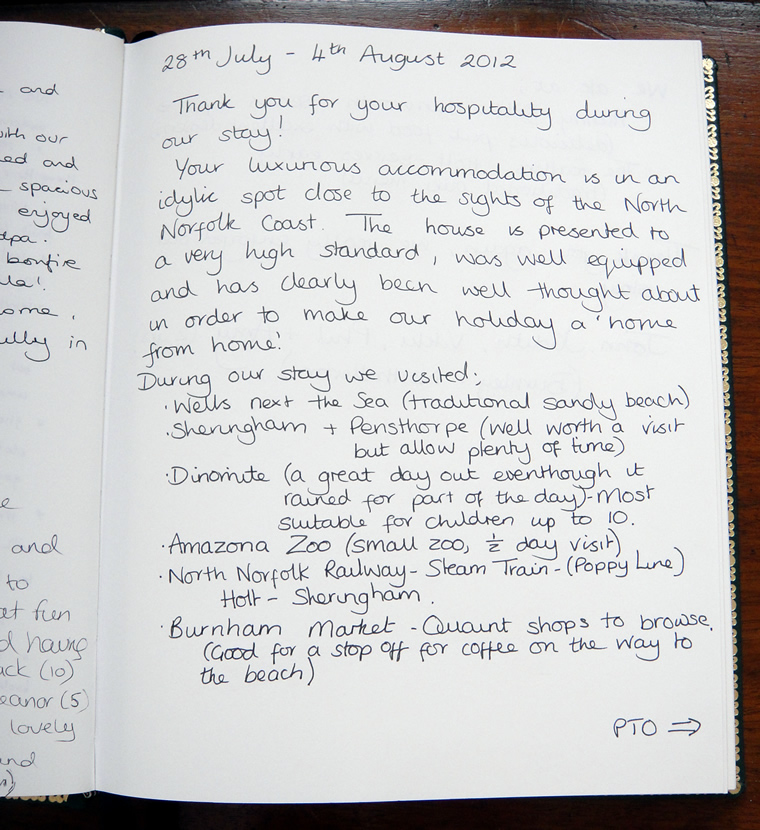 and
with our
ed and
spacious
enjoyed
dpa.
bonfire
la!
ome,
ully in
e
and
to
at fun
d having
ack (10)
eanor (5)
lovely
and
28th July - 4th August 2012
Thank you for your hospitality during
our stay!
Your luxurious accommodation is in an
idylic spot close to the sights of the North
Norfolk Coast. The house is presented to
a very high standard, was well equipped
and has clearly been well thought about
in order to make our holiday a 'home
from home'.
During our stay we visited:
·Wells next the Sea (traditional sandy beach)
·Sheringham + Pensthorpe (well worth a visit
but allow plenty of time)
·Dinomite (a great day out eventhough it
rained for part of the day)-most
suitable for children up to 10.
·Amazona Zoo (small zoo, ½ day visit)
·North Norfolk Railway- Steam Train-(Poppy Line)
Holt - Sheringham.
·Burnham Market - Quaint shops to browse.
(Good for a stop off for coffee on the way to
the beach)
PTO ⇒